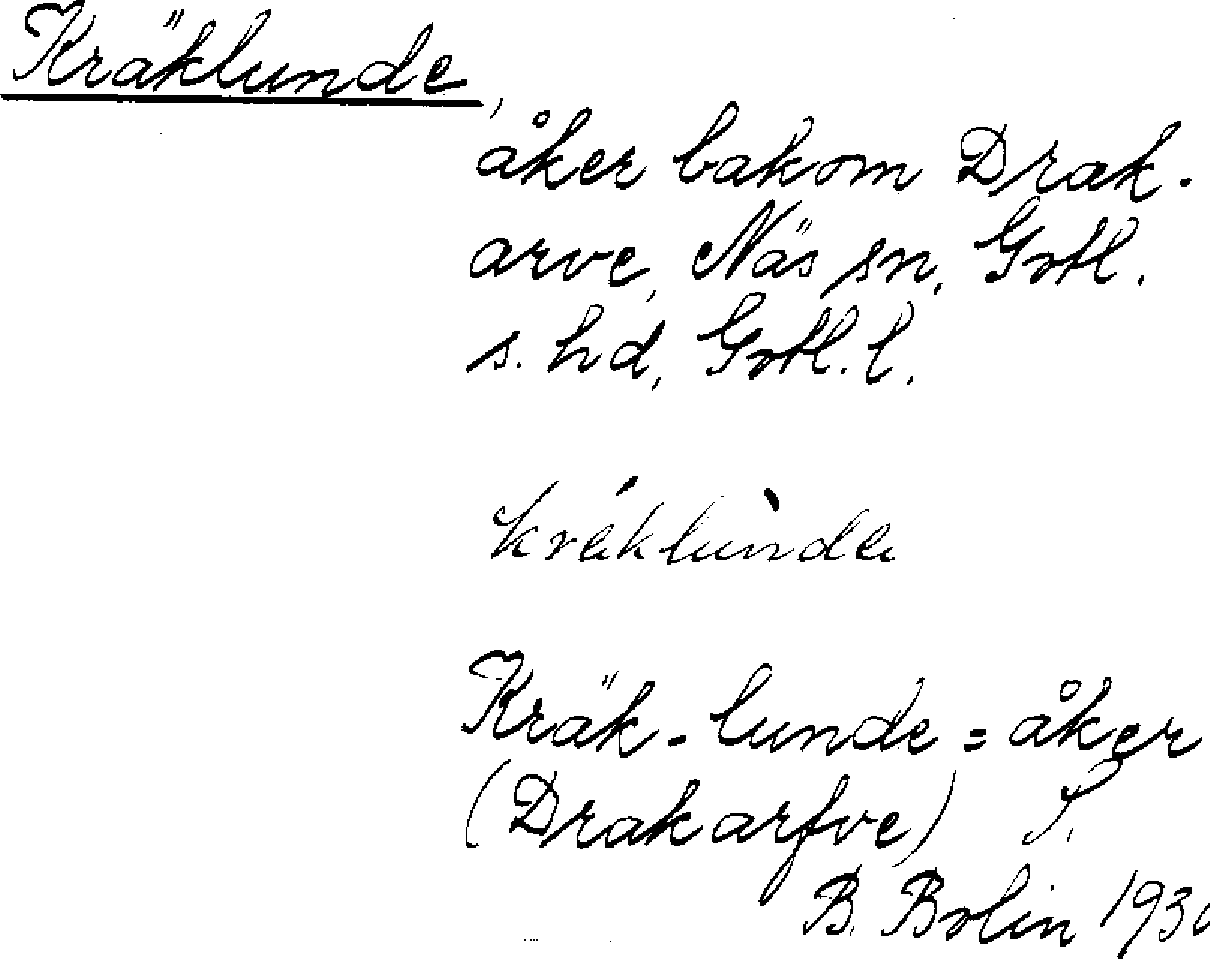 Kräklunde,
åker bakom Drak-
arve, Näs sn, Gotl.
s. hd, Gotl. l.
kräklùnde
Kräk-lunde = åker
(Drakarfve) S.
B. Bolin